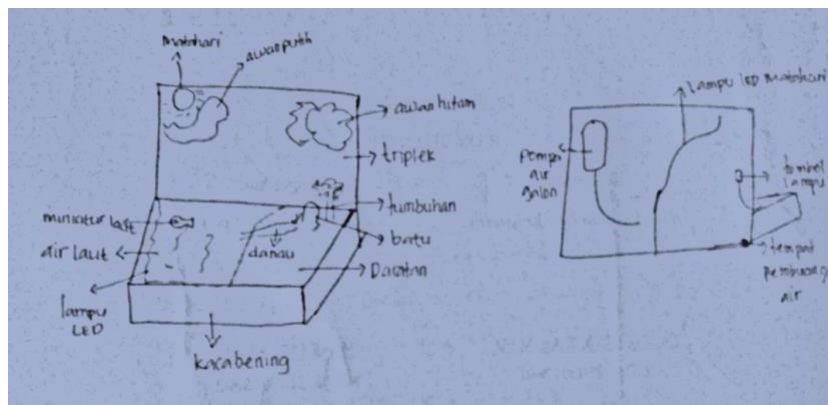 Matahari
awan putih
awan hitam
triplek
tumbuhan
miniatur laut
batu
air laut
danau
Daratan
lampu
LED
kaca bening
Lampu LED Matahari
pompa
air
galon
tombol
lampu
tempat
pembuang
air